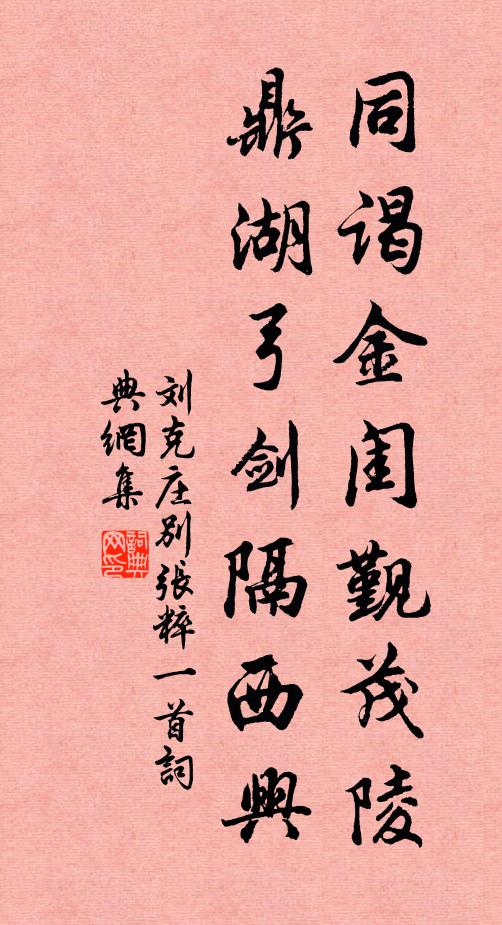 同谒金闺觐茂陵
鼎湖弓剑隔西興
刘克庄别張粹一首詞
典網集
詞典网印